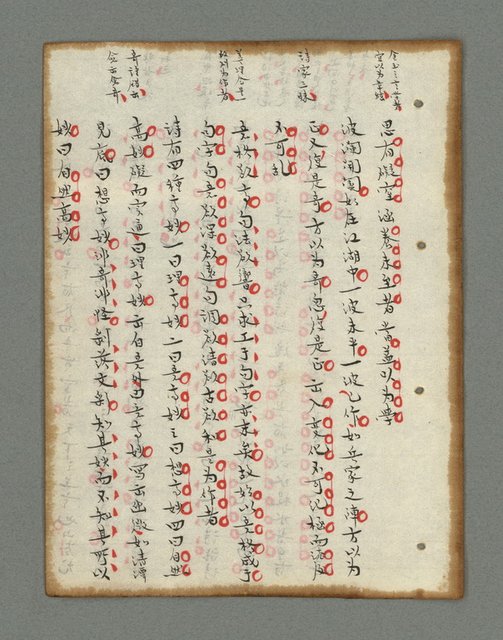 思有礙窒涵養未至者當益以為學
波瀾開闔如在江湖中一波未平一波已作如兵家之陣方以為
詩家三昧
正又復是奇方以為奇忽復是正出入變化不可紀極而法度
不可亂
意格欲高句法欲響只求工于句字亦末矣故始以意格成于
句字句意欲深欲遠句調欲清欲古欲和是為作者
詩有四種高妙一曰理高妙二曰意高妙三曰想高妙四曰自然
高妙礙而實通曰理高妙出自意外曰意高妙寫出幽微如清潭
見底曰想高妙非奇非怪剝落文采知其妙而不知其所以
妙曰自然高妙